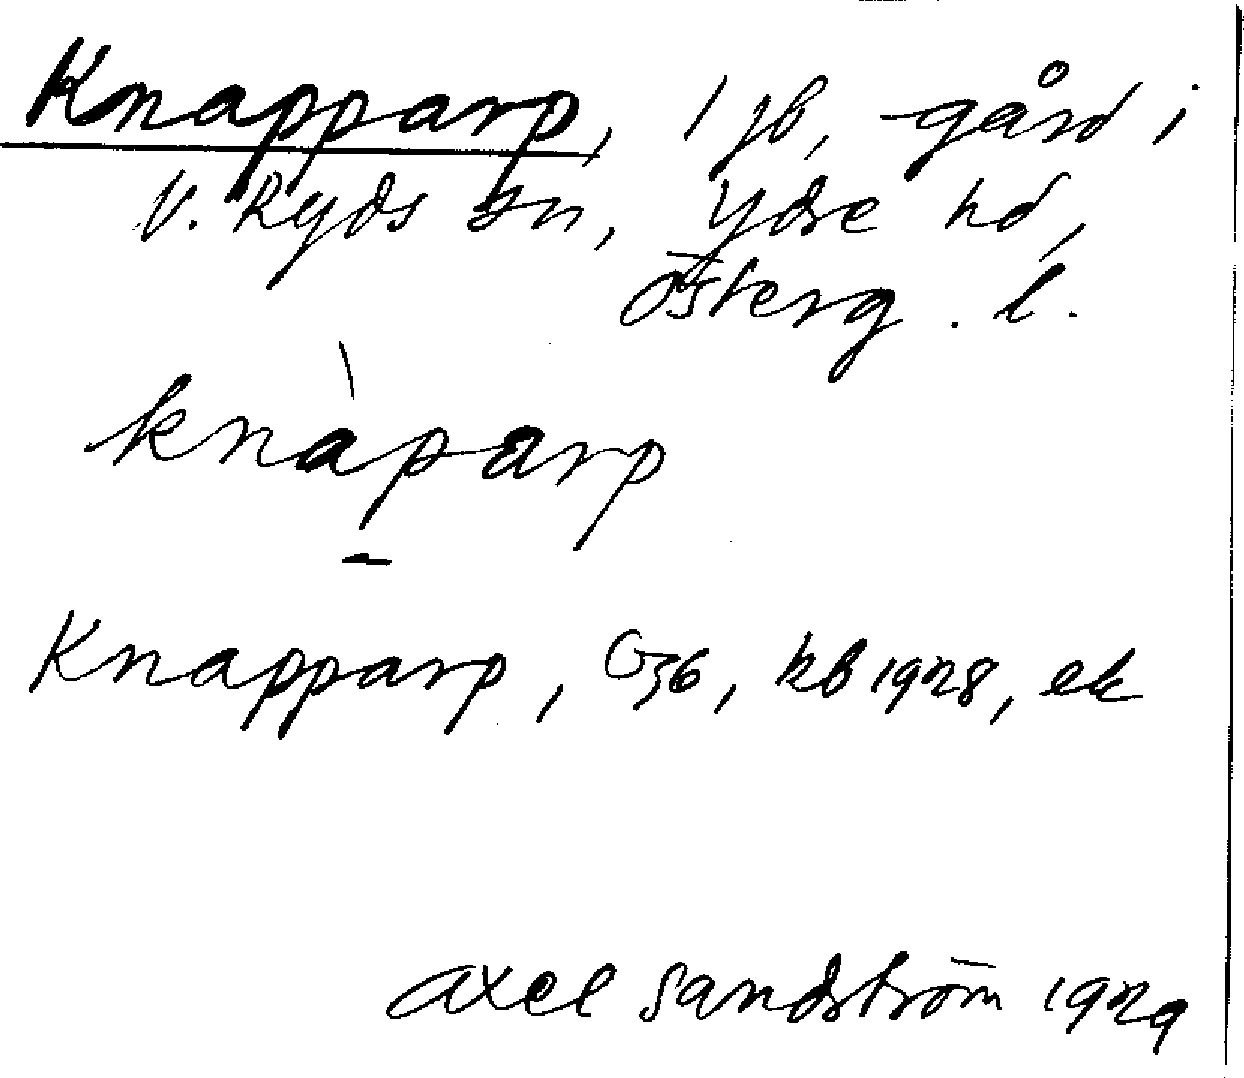 Knapparp, 1 jb, -gård i
V. Ryds sn, Ydre hd,
Österg. l.
knàparp
Knapparp, G36, kb 1928, ek
Axel Sandström 1929